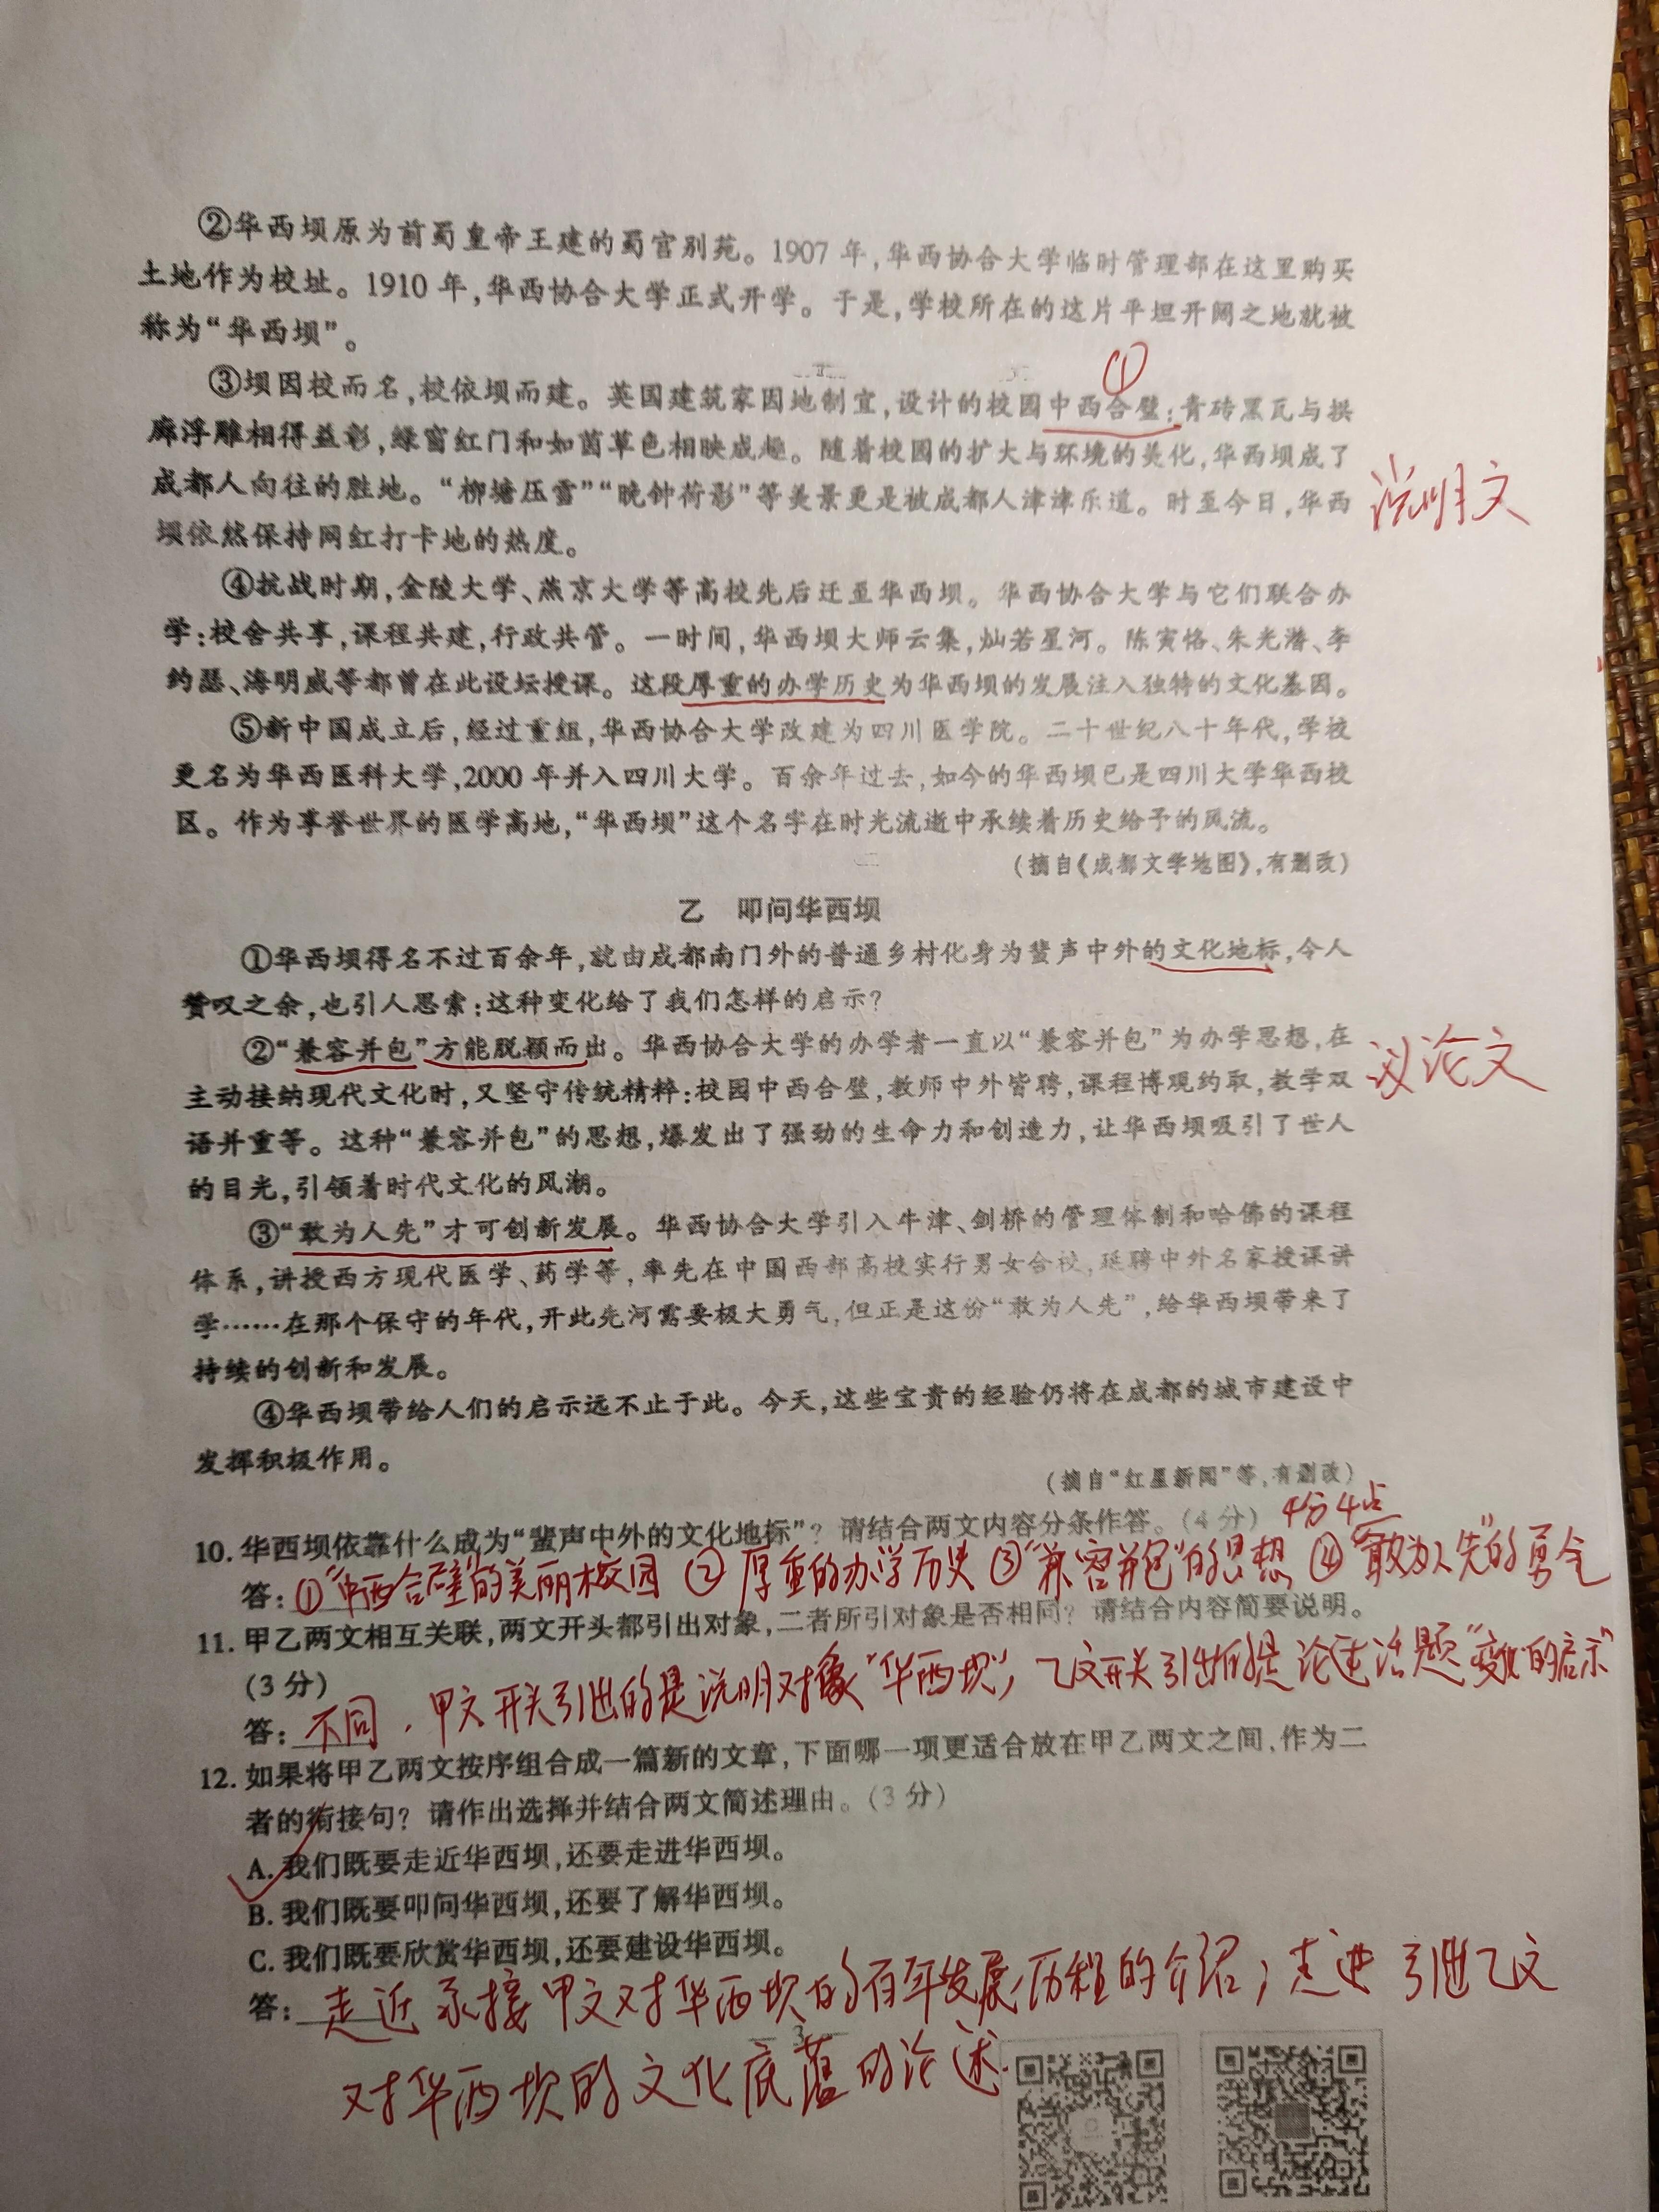 ②华西坝原为前蜀皇帝王建的蜀宫别苑。1907年,华西协合大学临时管理部在这里购买
土地作为校址。1910年,华西协合大学正式开学。于是,学校所在的这片平坦开阔之地就被
称为“华西坝”。
①
③坝因校而名,校依坝而建。英国建筑家因地制宜,设计的校园中西合璧:青砖黑瓦与拱
廊浮雕相得益彰,绿窗红门和如茵草色相映成趣。随着校园的扩大与环境的美化,华西坝成了
成都人向往的胜地。“柳塘压雪”“晚钟荷影”等美景更是被成都人津津乐道。时至今日,华西
说明文
坝依然保持网红打卡地的热度。
④抗战时期,金陵大学、燕京大学等高校先后迁至华西坝。华西协合大学与它们联合办
学:校舍共享,课程共建,行政共管。一时间,华西坝大师云集,灿若星河。陈寅恪、朱光潜、李
约瑟、海明威等都曾在此设坛授课。这段厚重的办学历史为华西坝的发展注入独特的文化基因。
⑤新中国成立后,经过重组,华西协合大学改建为四川医学院。二十世纪八十年代,学校
更名为华西医科大学,2000年并入四川大学。百余年过去,如今的华西坝已是四川大学华西校
区。作为享誉世界的医学高地,“华西坝”这个名字在时光流逝中承续着历史给予的风流。
(摘自《成都文学地图》,有删改)
乙 叩问华西坝
①华西坝得名不过百余年,就由成都南门外的普通乡村化身为蜚声中外的文化地标,令人
赞叹之余,也引人思索:这种变化给了我们怎样的启示?
②“兼容并包”方能脱颖而出。华西协合大学的办学者一直以“兼容并包”为办学思想,在
议论文
主动接纳现代文化时,又坚守传统精粹:校园中西合璧,教师中外皆聘,课程博观约取,教学双
语并重等。这种“兼容并包”的思想,爆发出了强劲的生命力和创造力,让华西坝吸引了世人
的目光,引领着时代文化的风潮。
③“敢为人先”才可创新发展。华西协合大学引入牛津、剑桥的管理体制和哈佛的课程
体系,讲授西方现代医学、药学等,率先在中国西部高校实行男女合校,延聘中外名家授课讲
学……在那个保守的年代,开此先河需要极大勇气,但正是这份“敢为人先”,给华西坝带来了
持续的创新和发展。
④华西坝带给人们的启示远不止于此。今天,这些宝贵的经验仍将在成都的城市建设中
发挥积极作用。
(摘自“红星新闻”等,有删改)
10. 华西坝依靠什么成为“蜚声中外的文化地标”?请结合两文内容分条作答。(4分) 4分4点
答: ①“中西合璧”的美丽校园 ②厚重的办学历史 ③“兼容并包”的思想 ④“敢为人先”的勇气
11. 甲乙两文相互关联,两文开头都引出对象,二者所引对象是否相同?请结合内容简要说明。
(3分)
答: 不同,甲文开头引出的是说明对象“华西坝”,乙文开头引出的是论述话题“变化的启示”
12. 如果将甲乙两文按序组合成一篇新的文章,下面哪一项更适合放在甲乙两文之间,作为二
者的衔接句?请作出选择并结合两文简述理由。(3分)
A. 我们既要走近华西坝,还要走进华西坝。
B. 我们既要叩问华西坝,还要了解华西坝。
C. 我们既要欣赏华西坝,还要建设华西坝。
答: 走近承接甲文对华西坝的百年发展历程的介绍;走进引出乙文
3
对华西坝的文化底蕴的论述.